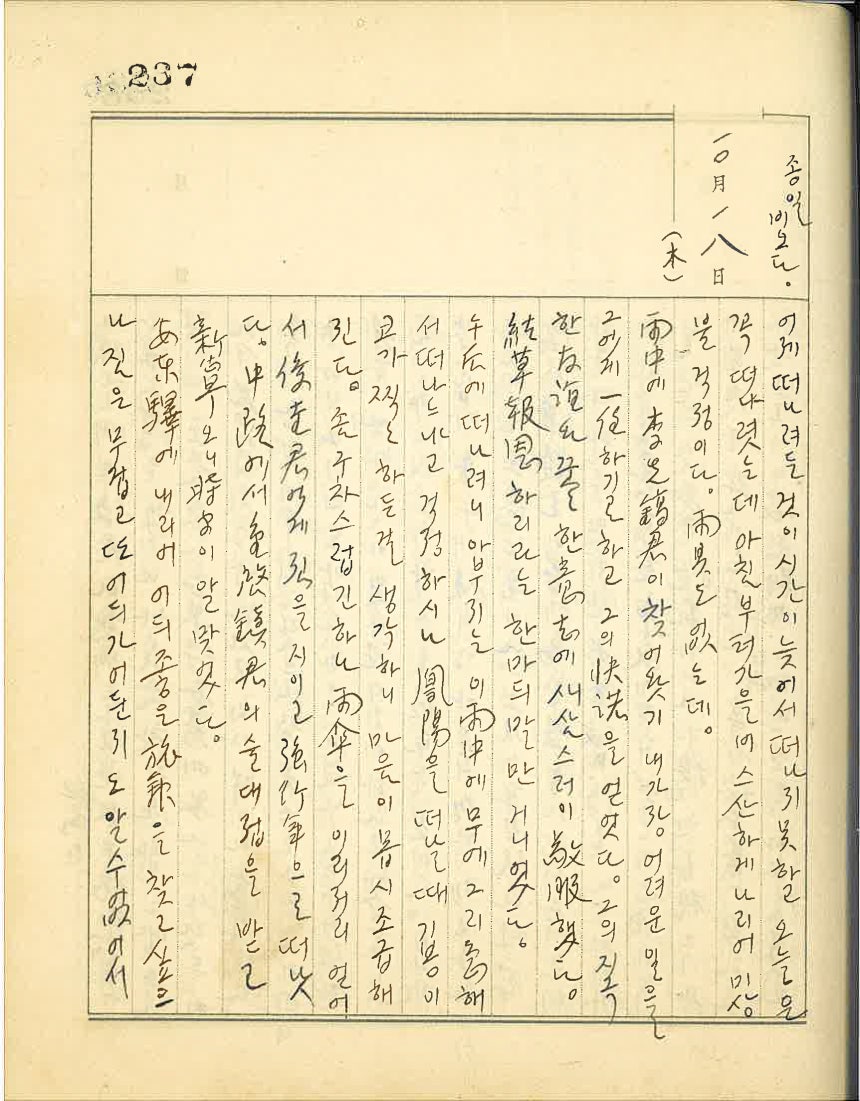 237
종일 비오다.
一〇月一八日
(木)
어제 떠나려든 것이 시간이 늦어서 떠나지 못하고 오늘은
꼭 떠나렷는데 아침부터 가을비 스산하게 나리어 미상
불 걱정이다. 雨具도 없는데.
雨中에 李 鎬君이 찾어왓기 내 가장 어려운 일을
그에게 一任하기로 하고 그의 快諾을 얻엇다. 그의 지극
한 友誼와 끝 한 意志에 새삼스러이 敬服햇다.
結草報恩 하리라는 한마듸 말만 거니엇다.
午后에 떠나려니 아부지는 이 雨中에 무에 그리 急해
서 떠나느냐고 걱정하시나 鳳陽을 떠날 때 김봉이
고가 찍는 하든걸 생각하니 마음이 몹시 조급해
진다. 좀 구차스럽긴 하나 雨傘을 이리저리 얻어
서 俊圭君에게 짐을 지이고 强行軍으로 떠낫
다. 中路에서 金 鎭君의 술대접을 받고
新 오니 時間이 알맞엇다.
安東驛에 내리어 어듸 좋은 旅館을 찾고 싶으
나 짐은 무겁고 또 어듸가 어딘지도 알 수 없어서